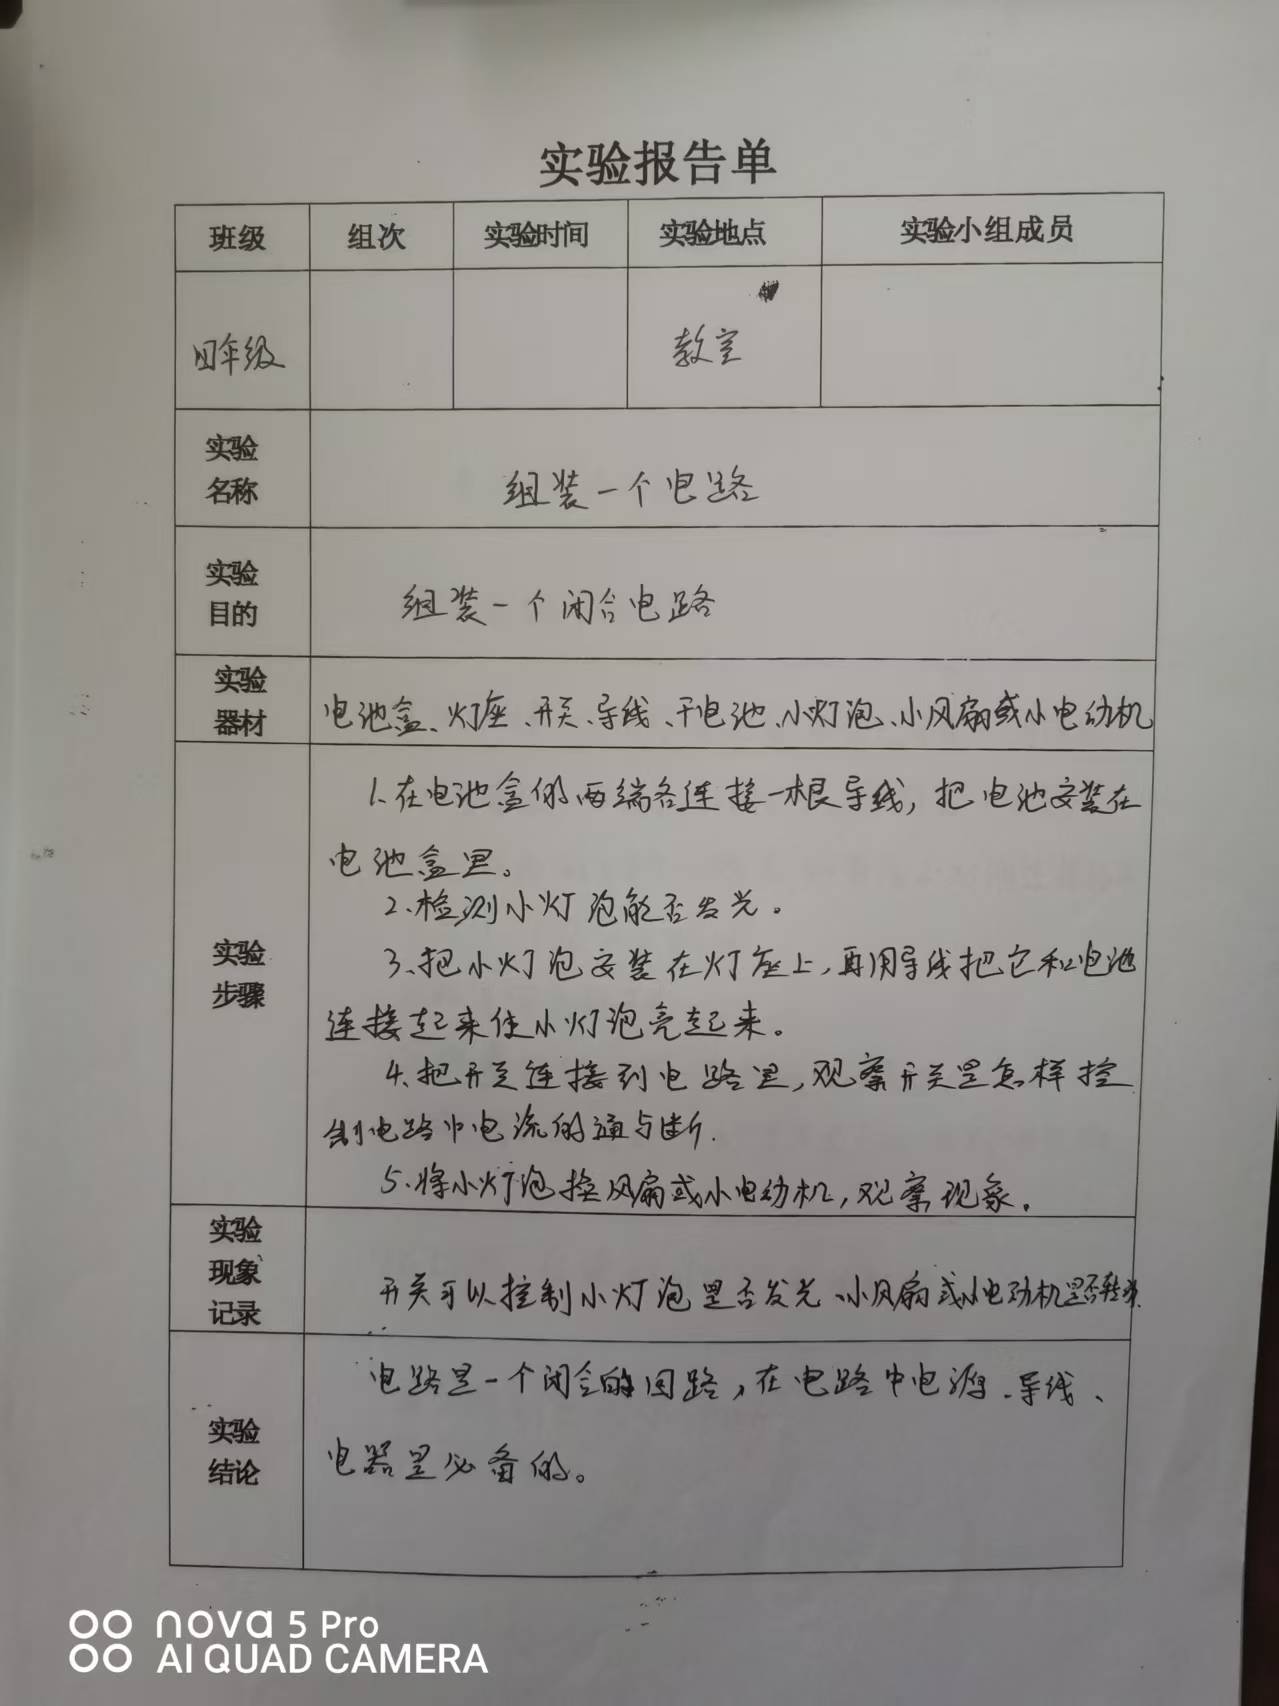 实验报告单
班级 组次 实验时间 实验地点 实验小组成员
四年级 教室
实验
名称
组装一个电路
实验
目的
组装一个闭合电路
实验
器材
电池盒、灯座、开关、导线、干电池、小灯泡、小风扇或小电动机
实验
步骤
1、在电池盒的两端各连接一根导线，把电池安装在
电池盒里。
2、检测小灯泡能否发光。
3、把小灯泡安装在灯座上，再用导线把它和电池
连接起来使小灯泡亮起来。
4、把开关连接到电路里，观察开关是怎样控
制电路中电流的通与断.
5、将小灯泡换风扇或小电动机，观察现象。
实验
现象
记录
开关可以控制小灯泡是否发光、小风扇或小电动机是否转动.
实验
结论
电路是一个闭合的回路，在电路中电源、导线、
电器是必备的。
nova 5 Pro
AI QUAD CAMERA